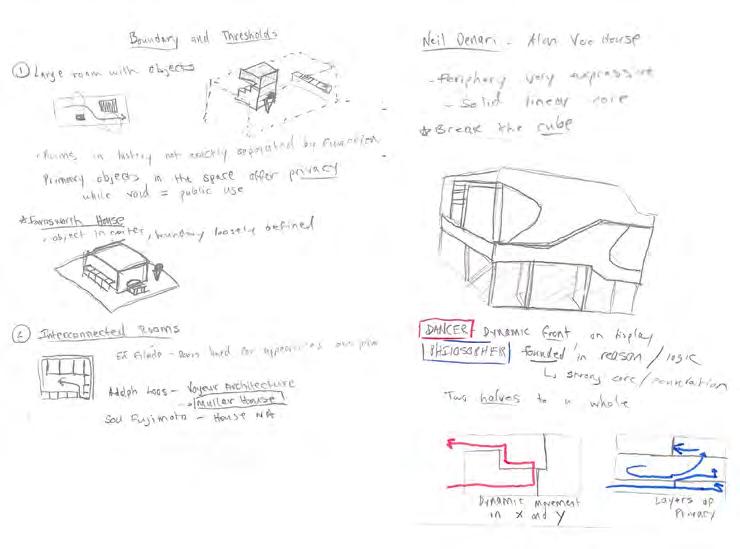 Boundary and Thresholds
① Large room with objects
Rooms in history not exactly separated by function
Primary objects in the space offer privacy
while void = public use
* Farnsworth House
object in center, boundary loosely defined
② Interconnected Rooms
Adolph Loos - Voyeur Architecture
→ Muller House
Sou Fujimoto - House NA
Neil Denari - Alan Voo House
- Periphery very expressive
- Solid linear core
* Break the cube
DANCER Dynamic front, on display
PHILOSOPHER founded in reason/logic
↳ strong core/
Two halves to a whole
Dynamic movement
in X and Y
Layers of
Privacy